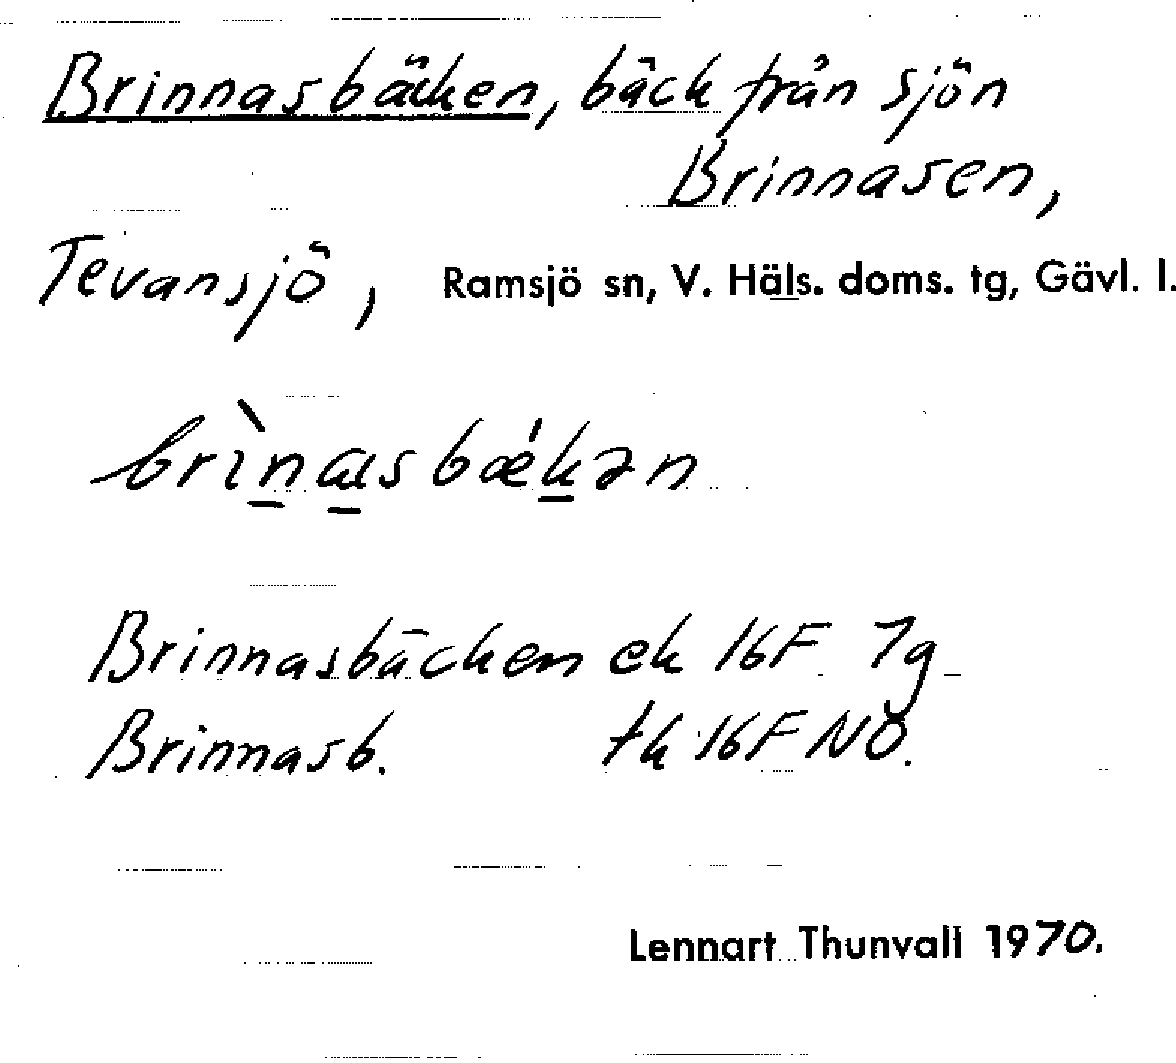 Brinnasbäcken, bäck från sjön
Brinnasen,
Tevansjö, Ramsjö sn, V. Häls. doms. tg, Gävl. l.
brìn̠a̠sbǽk̠ən
Brinnasbäcken ek 16F 7g
Brinnasb. tk 16F NÖ.
Lennart Thunvall 1970.